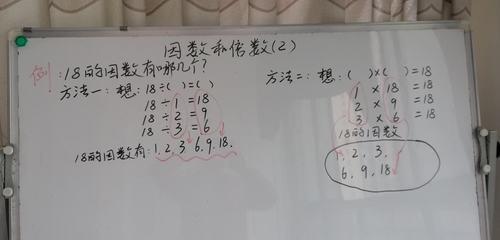 因数和倍数(2)
例:18的因数有哪几个?
方法一:想:18÷( )=( )
18÷1=18
18÷2=9
18÷3=6
18的因数有:1,2,3,6,9,18.
方法二:想:( )×( )=18
1×18=18
2×9=18
3×6=18
18的因数
1,2,3,
6,9,18